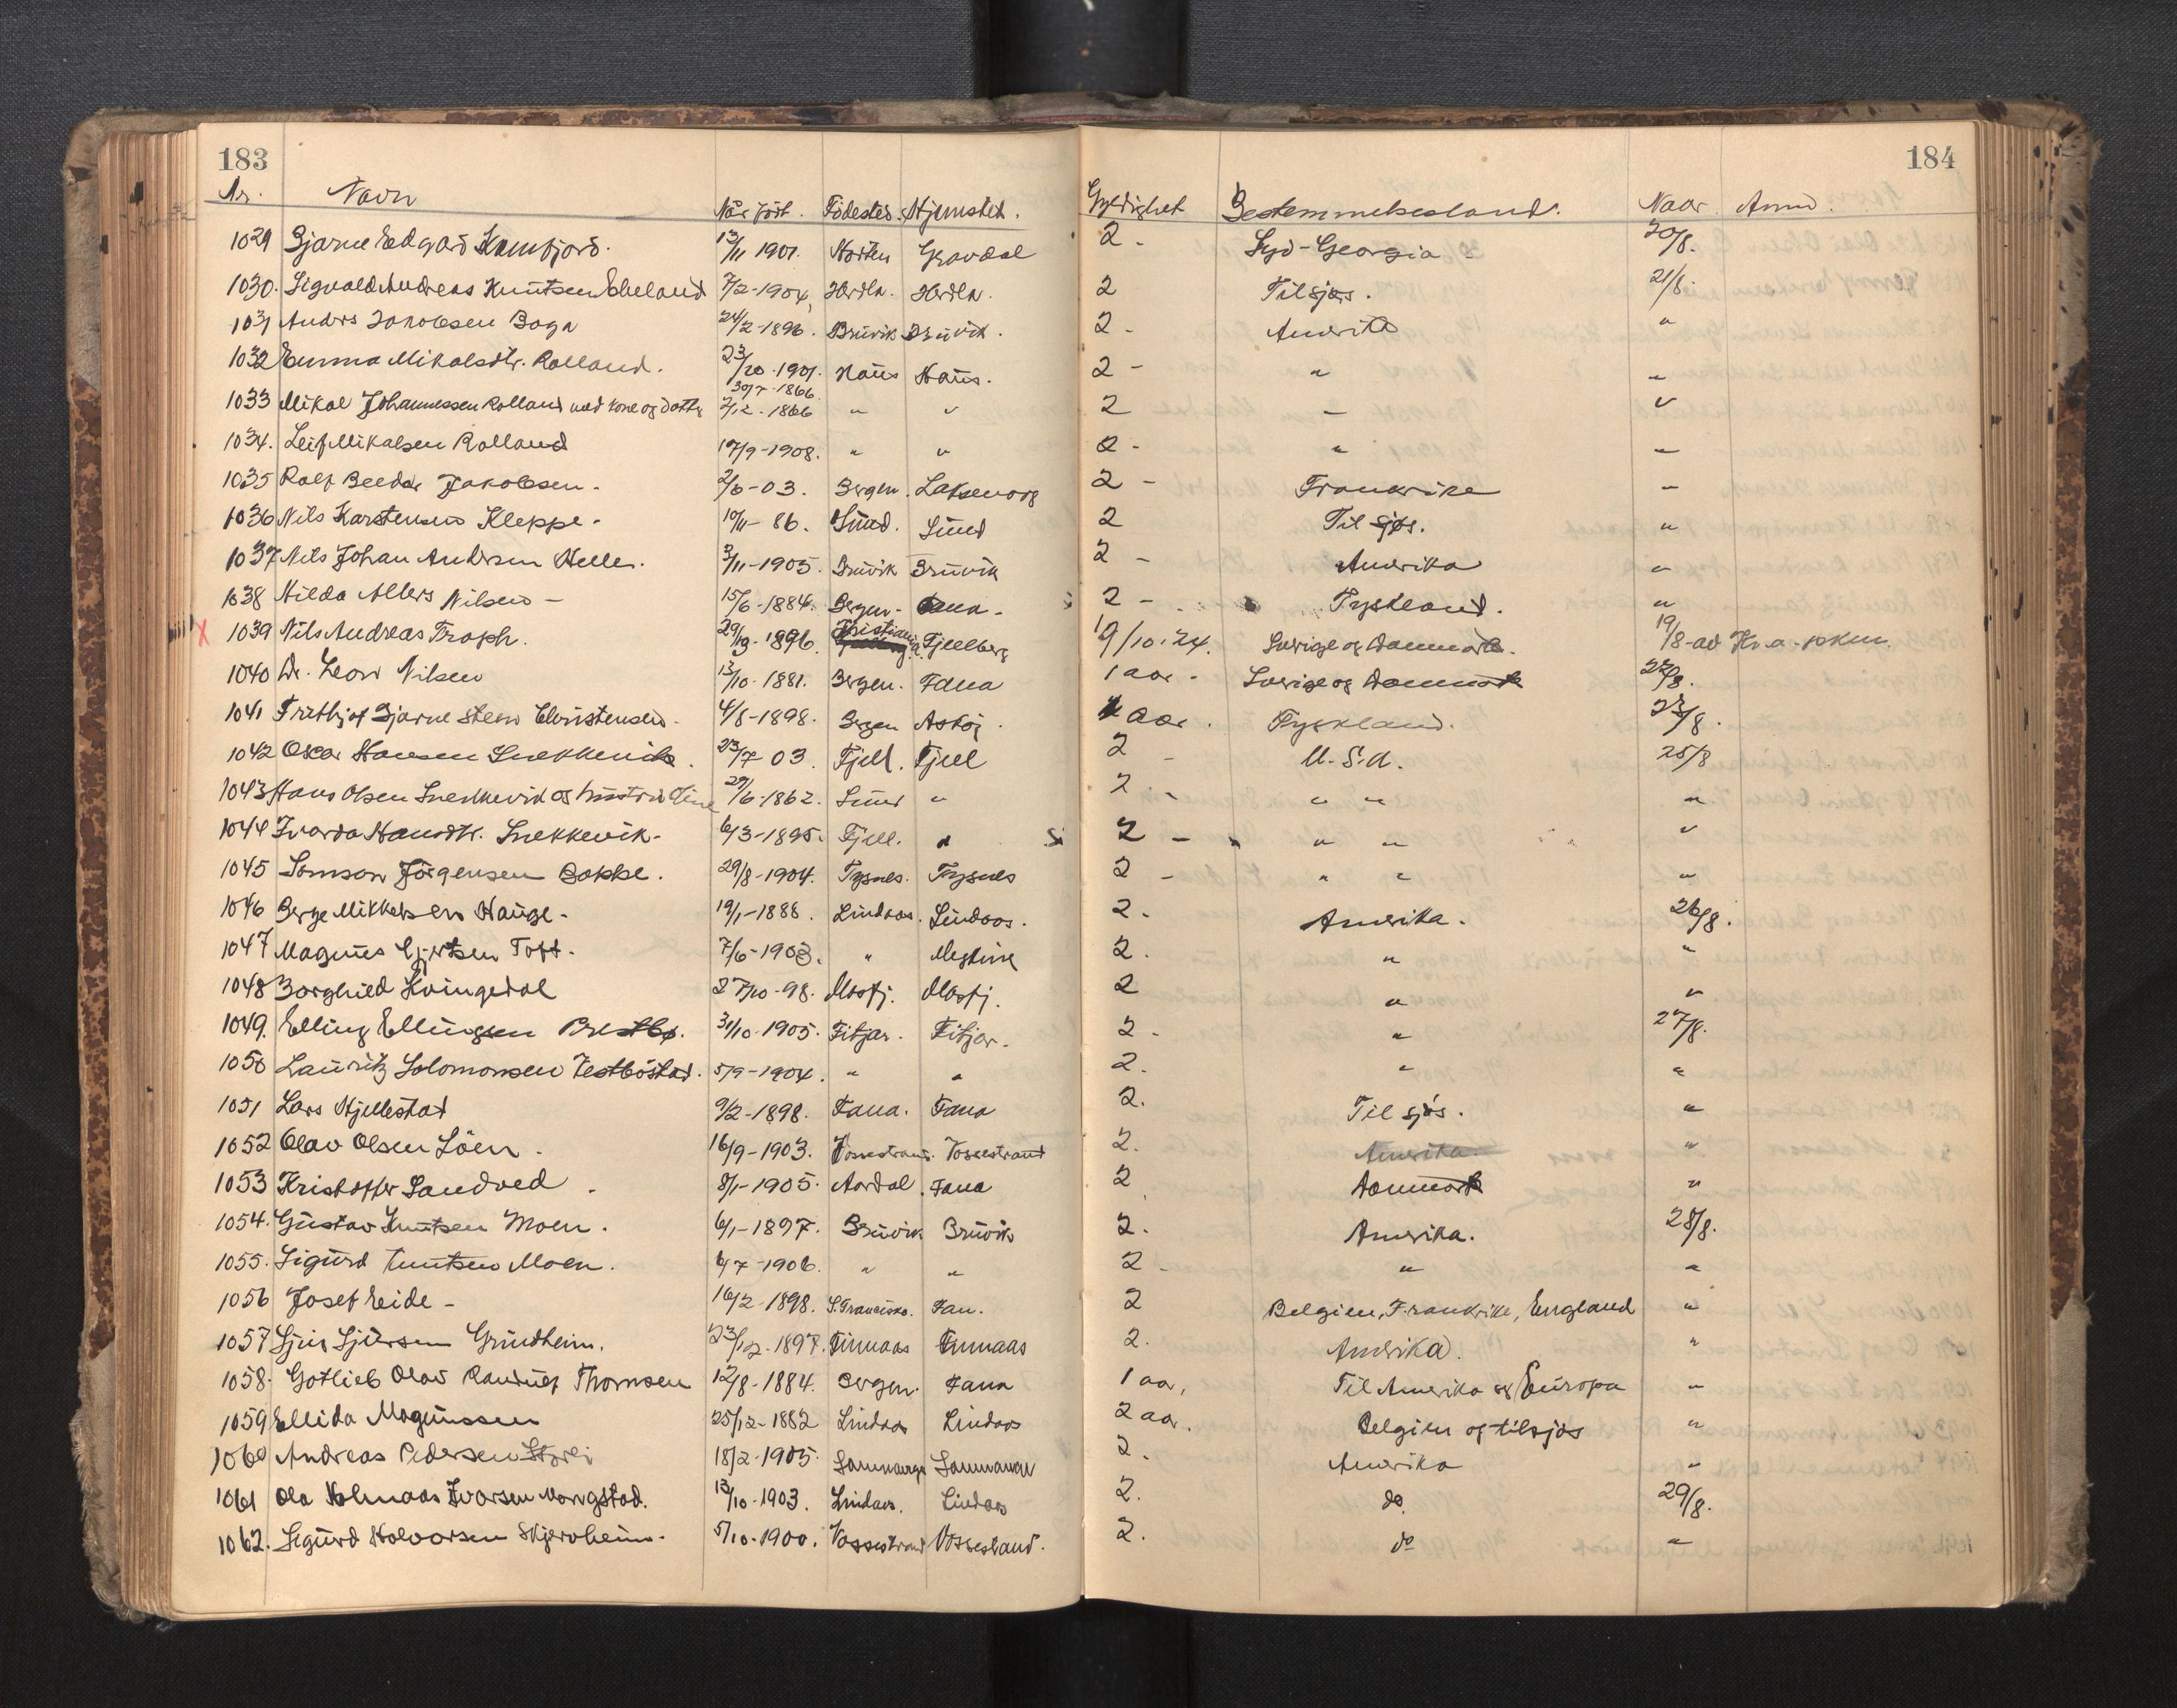 183
184
Nr. Navn Når född. Födested. Hjemsted. Gyldighet Bestemmelsesland. Naar Anm.
1029 Bjarne Edgard Kamfjord. 13/11 1901. Horten Gravdal 2 - Syd-Georgia 20/8.
1030. Sigvald Andreas Knutsen 7/2-1904, Herdla. Herdla. 2 Tilsjøs. 21/8.
1031 Anders Jakobsen Boga 24/2-1896. Bruvik Bruvik. 2 - Amerika "
1032 Emma Mikalsdtr. Rolland. 23/10-1901. Haus Haus. 2 - " "
1033 Mikal Johannessen Rolland med kone og datter 30/7-1866. 2/12-1866 " " 2 " "
1034. Leif Mikalsen Rolland 17/9-1908. " " 2 - " "
1035 Rolf Beeder Jakobsen. 2/6-03. Bergen. Laksevaag 2 - Frankrike "
1036 Nils Karstensen Kleppe. 10/11-86. Sund. Sund 2 Til sjøs. "
1037 Nils Johan Andersen Helle. 3/11-1905. Bruvik Bruvik 2 - Amerika "
1038 Hilda Allers Nilsen - 15/6-1884. Bergen - Fana - 2 - Tyskland. "
1039 Nils Andreas Troph. 29/9-1896. Kristiania Fjelberg 19/10-24. Sverige og Danmark. 19/8-av Kr.a.
1040 Dr. Leon Nilsen 13/10-1881. Bergen. Fana 1 aar - Sverige og Danmark 22/8.
1041 Fritjof Bjarne Steen Christensen. 4/8-1898. Bergen Askøj. 1 aar. Tyskland. 23/8.
1042 Oscar Hansen Snekkevik. 23/7 03. Fjell. Fjell 2 - U.S.A. 25/8
1043 Hans Olsen Snekkevik og hustru Tine 29/6-1862. Sund " 2 - " " "
1044 Ivarda Hansdtr. Snekkevik - 6/3-1895. Fjell. " 2 - " " "
1045 Samson Jörgensen Bakke. 29/8-1904. Tysnes. Tysnes 2 - " " "
1046 Berge Mikkelsen Hauge - 19/1-1888. Lindaas. Lindaas. 2. Amerika. 26/8.
1047 Magnus Gjertsen Toft. 7/6-1903. " 2. " "
1048 Borghild Kvingedal 27/10-98. Masfj. Masfj. 2 " "
1049. Elling Ellingsen Prestbø. 31/10-1905. Fitjar. Fitjar. 2 - " 27/8.
1050 Lauritz Solomonsen Vestbøstad. 5/9-1904. " " 2. " "
1051 Lars Hjellestad 9/2-1898. Fana. Fana 2. Til sjös. "
1052 Olav Olsen Löen. 16/9-1903. Vossestrand. Vossestrand 2. Amerika. "
1053 Kristoffer Sandved. 8/1-1905. Aardal. Fana 2. Danmark "
1054. Gustav Knutsen Moen. 6/1-1897. Bruvik Bruvik 2. Amerika. 28/8.
1055. Sigurd Knutsen Moen. 6/7-1906. " " 2 - " "
1056 Josef Eide - 16/2-1898. S. Francisko. Fan. 2 Belgien, Frankrike, England "
1057 Sjur Sjursen Grindheim. 23/12-1897. Finnaas Finnaas 2. Amerika. "
1058. Gotlieb Olav Randulf Thomsen 12/8-1884. Bergen. Fana 1 aar, Til Amerika og Europa "
1059 Ellida Magnussen 25/12-1882 Lindaas Lindaas 2 aar. Belgien og tilsjøs "
1060 Andreas Pedersen 18/2-1905. Samnanger Samnanger 2. Amerika "
1061 Ola Ivarsen 13/10-1903. Lindaas. Lindaas 2. do. 29/8.
1062. Sigurd Halvorsen Skjervheim. 5/10-1900. Vossestrand Vossestrand. 2. do "